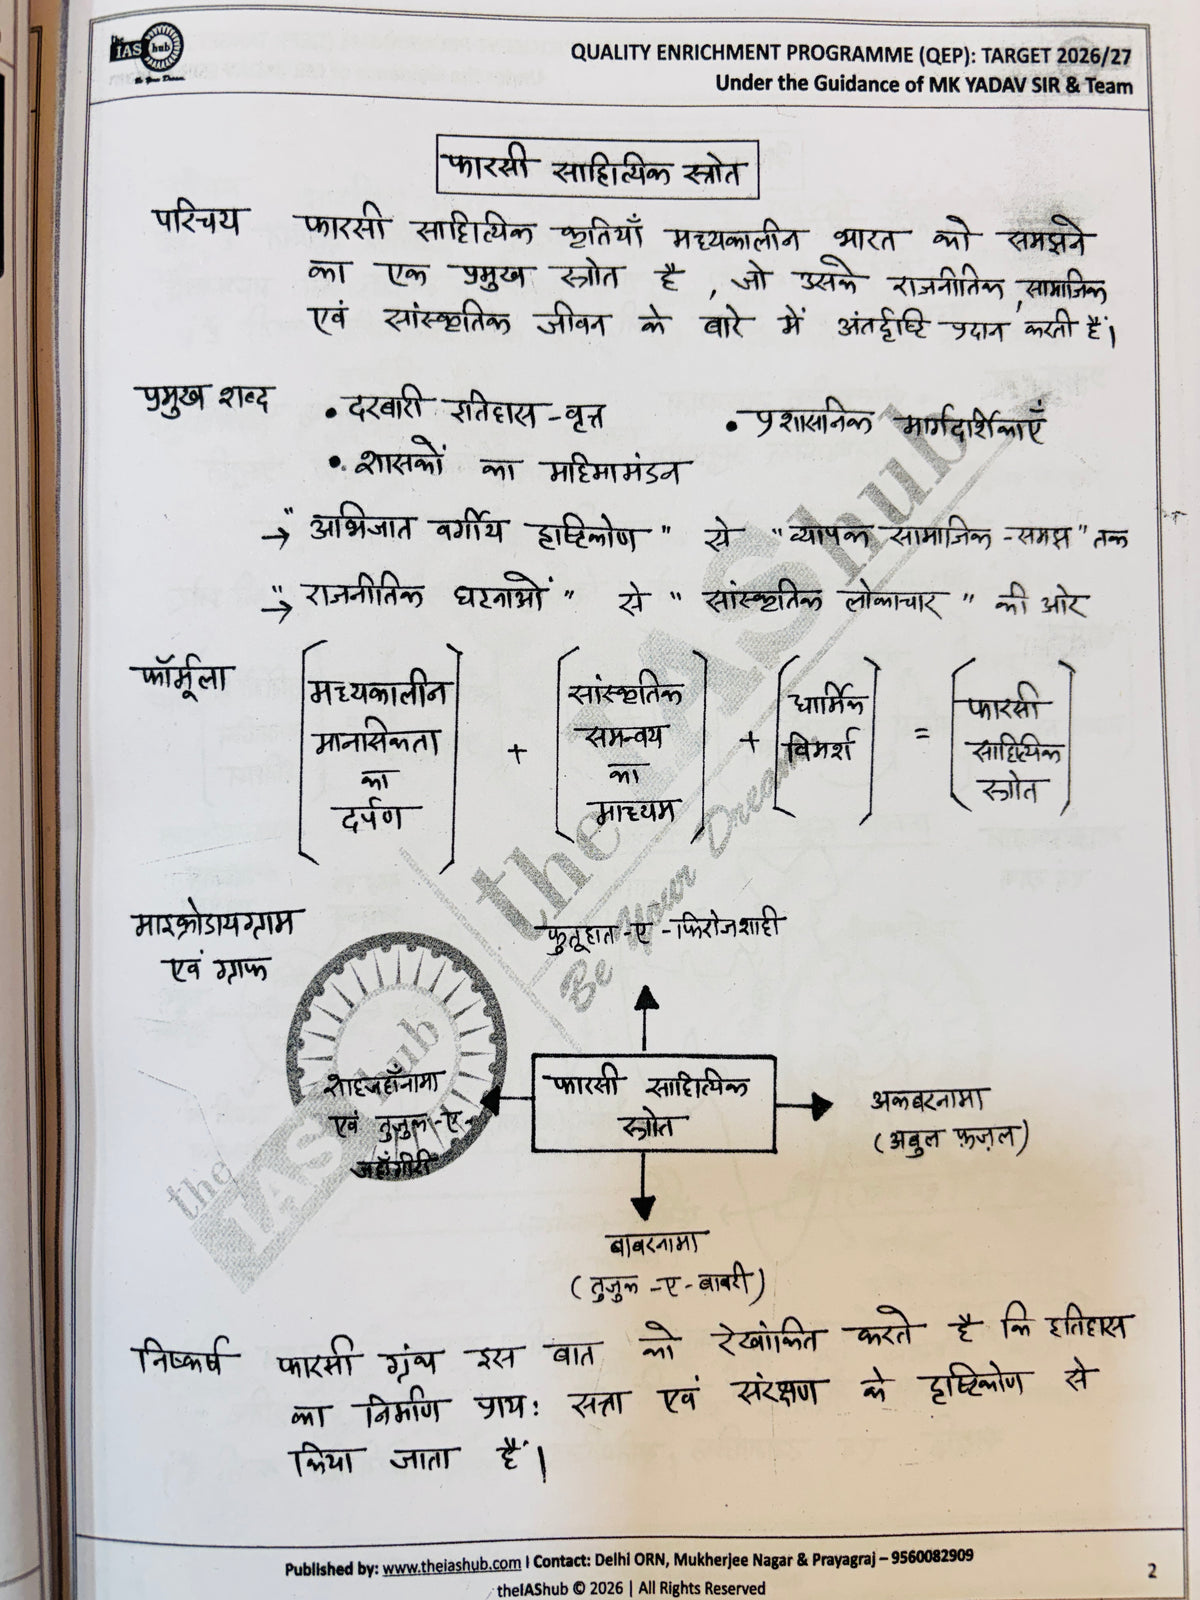 the IAS hub
Be Your Dream
QUALITY ENRICHMENT PROGRAMME (QEP): TARGET 2026/27
Under the Guidance of MK YADAV SIR & Team
फारसी साहित्यिक स्त्रोत
परिचय फारसी साहित्यिक कृतियाँ मध्यकालीन भारत को समझने
का एक प्रमुख स्त्रोत है, जो उसके राजनीतिक, सामाजिक
एवं सांस्कृतिक जीवन के बारे में अंतर्दृष्टि प्रदान करती हैं।
प्रमुख शब्द • दरबारी इतिहास-वृत्त • प्रशासनिक मार्गदर्शिकाएँ
• शासकों का महिमामंडन
→ "अभिजात वर्गीय दृष्टिकोण" से "व्यापक सामाजिक-समझ" तक
→ "राजनीतिक घटनाओं" से "सांस्कृतिक लोकाचार" की ओर
फॉर्मूला
मध्यकालीन
मानसिकता
का
दर्पण
+
सांस्कृतिक
समन्वय
का
माध्यम
+
धार्मिक
विमर्श
=
फारसी
साहित्यिक
स्त्रोत
the IAS hub
Be Your Dream
माइक्रोडायग्राम
एवं ग्राफ
फुतूहात-ए-फिरोजशाही
शाहजहाँनामा
एवं तुजुक-ए-
जहाँगीरी
फारसी साहित्यिक
स्त्रोत
अकबरनामा
(अबुल फ़ज़ल)
बाबरनामा
(तुजुक-ए-बाबरी)
the IAS hub
निष्कर्ष फारसी ग्रंथ इस बात को रेखांकित करते है कि इतिहास
का निर्माण प्राय: सत्ता एवं संरक्षण के दृष्टिकोण से
किया जाता हैं।
Published by: www.theiashub.com I Contact: Delhi ORN, Mukherjee Nagar & Prayagraj – 9560082909
theIAShub © 2026 | All Rights Reserved
2